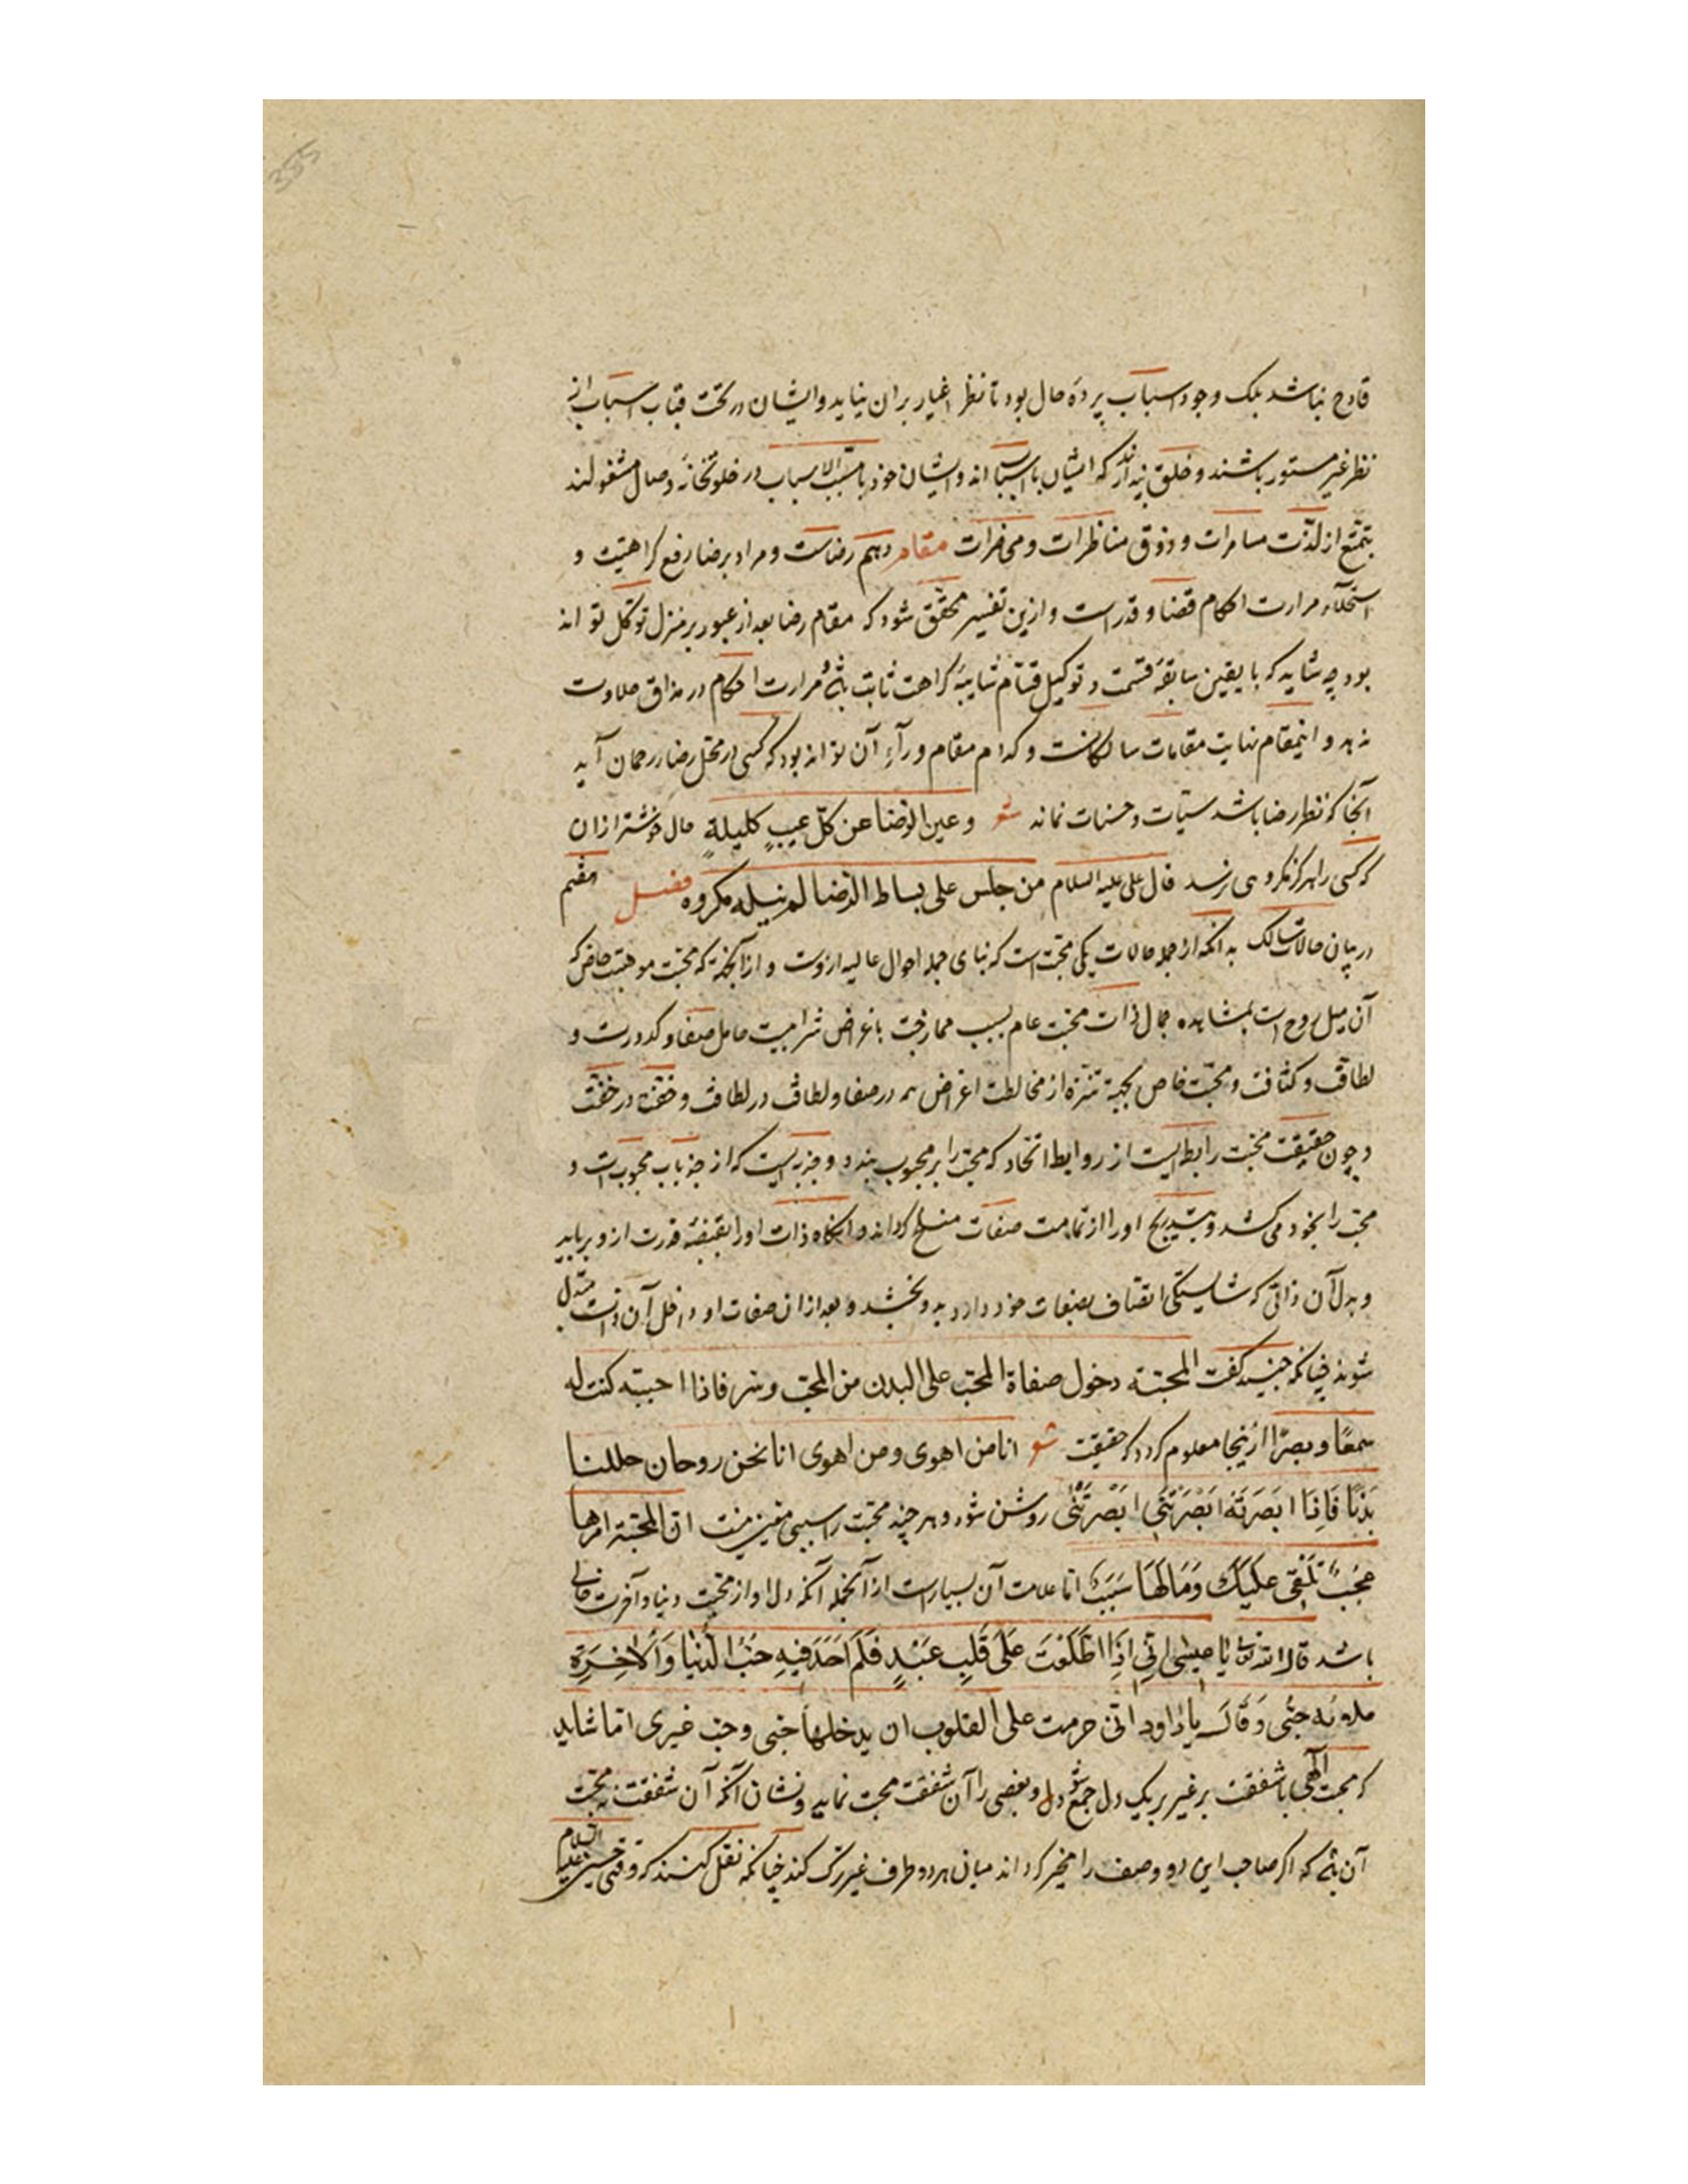 355
قادح نباشد بلک وجود اسباب پردهٔ حال بود تا نظر اغیار بران نیاید و ایشان در تحت قباب اسباب از
نظر غیر مستور باشند و خلق پندارند که ایشان با اسبابند و ایشان خود با مسبّب الاسباب در خلوتخانهٔ وصال مشغولند
بتمتّع از لذّت مسامرات و ذوق مناظرات و محاضرات مقام دهم رضاست و مراد برضا رفع کراهتیت و
استحلآء مرارت احکام قضا و قدر است و ازین تفسیر محقّق شود که مقام رضا بعد از عبور بر منزل توکّل تواند
بود چه شاید که با یقین سابقهٔ قسمت و توکیل قسّام شایبهٔ کراهت ثابت بود مرارت احکام در مذاق حلاوت
ندهد و اینمقام نهایت مقامات سالکانست و کدام مقام ورآءِ آن تواند بود که کسی در محلّ رضاء رحمان آید
آنجا که نظر رضا باشد سیّات و حسنات نماند شعر و عین الرّضا عن کلّ عیبٍ کلیلةٍ حال خوشتر ازان
که کسی را هرگز مکروهی نرسد قال علی علیه السلام من جلس علی بساط الرّضا لم ینیله مکروه فصل هفتم
در بیان حالات سالک بدانکه از جمله حالات یکی محبّت است که بنای جمله احوال عالیه ازوست و ازآنجهت که محبّت موهبتیت خاص که
آن میل روح است بمشاهده جمال ذات محبّت عام بسبب ممازجت باغراض شرابیت حامل صفا و کدورت و
لطافت و کثافت و محبّت خاص بجهة تنزّه از مخالطت اغراض همه در صفا و لطافت در لطافت و خفّت در خفّت
و چون حقیقت محبّت رابطه‌ایست از روابط اتّحاد که محبّ را بر محبوب بندد و جذبه‌ایست که از جذباب محبوب است و
محبّ را بخود می‌کشد و بتدریج او را از تمامت صفات منسلخ گرداند و آنگاه ذات او را بقبضهٔ قدرت ازو برباید
و بدل آن ذاتی که شایستگی اتصاف بصفات خود دارد بدو بخشد و بعد ازان صفات او داخل آن ذات متبدّل
شوند چنانکه جنید گفت المحبّة دخول صفاة المحبّ علی البدن من المحبّ و سرّ فاذا احببته کنت له
سمعًا و بصرًا ازینجا معلوم گردد که حقیقت شعر انا من اهوی و من اهوی انا نحن روحان حللنا
بَدَنًا فَاِذَا اَبصَرتَهُ اَبصَرتَنی اَبصَرتَنی روشن شود و هر چند محبّت را سببی معیّن نیست انّ المحبّة امرها
عجبٌ تلقی علیک و مالها سبب امّا علامت آن بسیارست ازآنجمله آنکه دل او از محبّت دنیا و آخرت خالی
باشد قال الله تعالی یا عیسی انّی اِذَا اطَّلَعْتَ عَلَیٰ قَلبِ عَبْدٍ فَلَم اَجَد فِیهِ حُبَّ الدُّنیَا وَالاٰخِرَةِ
ملاءته حبّی وَ قَالَ یا داود انّی حرمت علی القلوب ان یدخلها حبّی و حبّ غیری امّا شاید
که محبّت الهی با شفقت بر غیر بریک دل جمع شود و بعضی را آن شفقت محبت نماید و نشان آنکه آن شفقت نه محبّت
آن بود که اگر صاحب این دو وصف را مخیّر گردانند میان هر دو طرف غیر ترک کند چنانکه نقل کنند که وقتی حسین علیه السلام